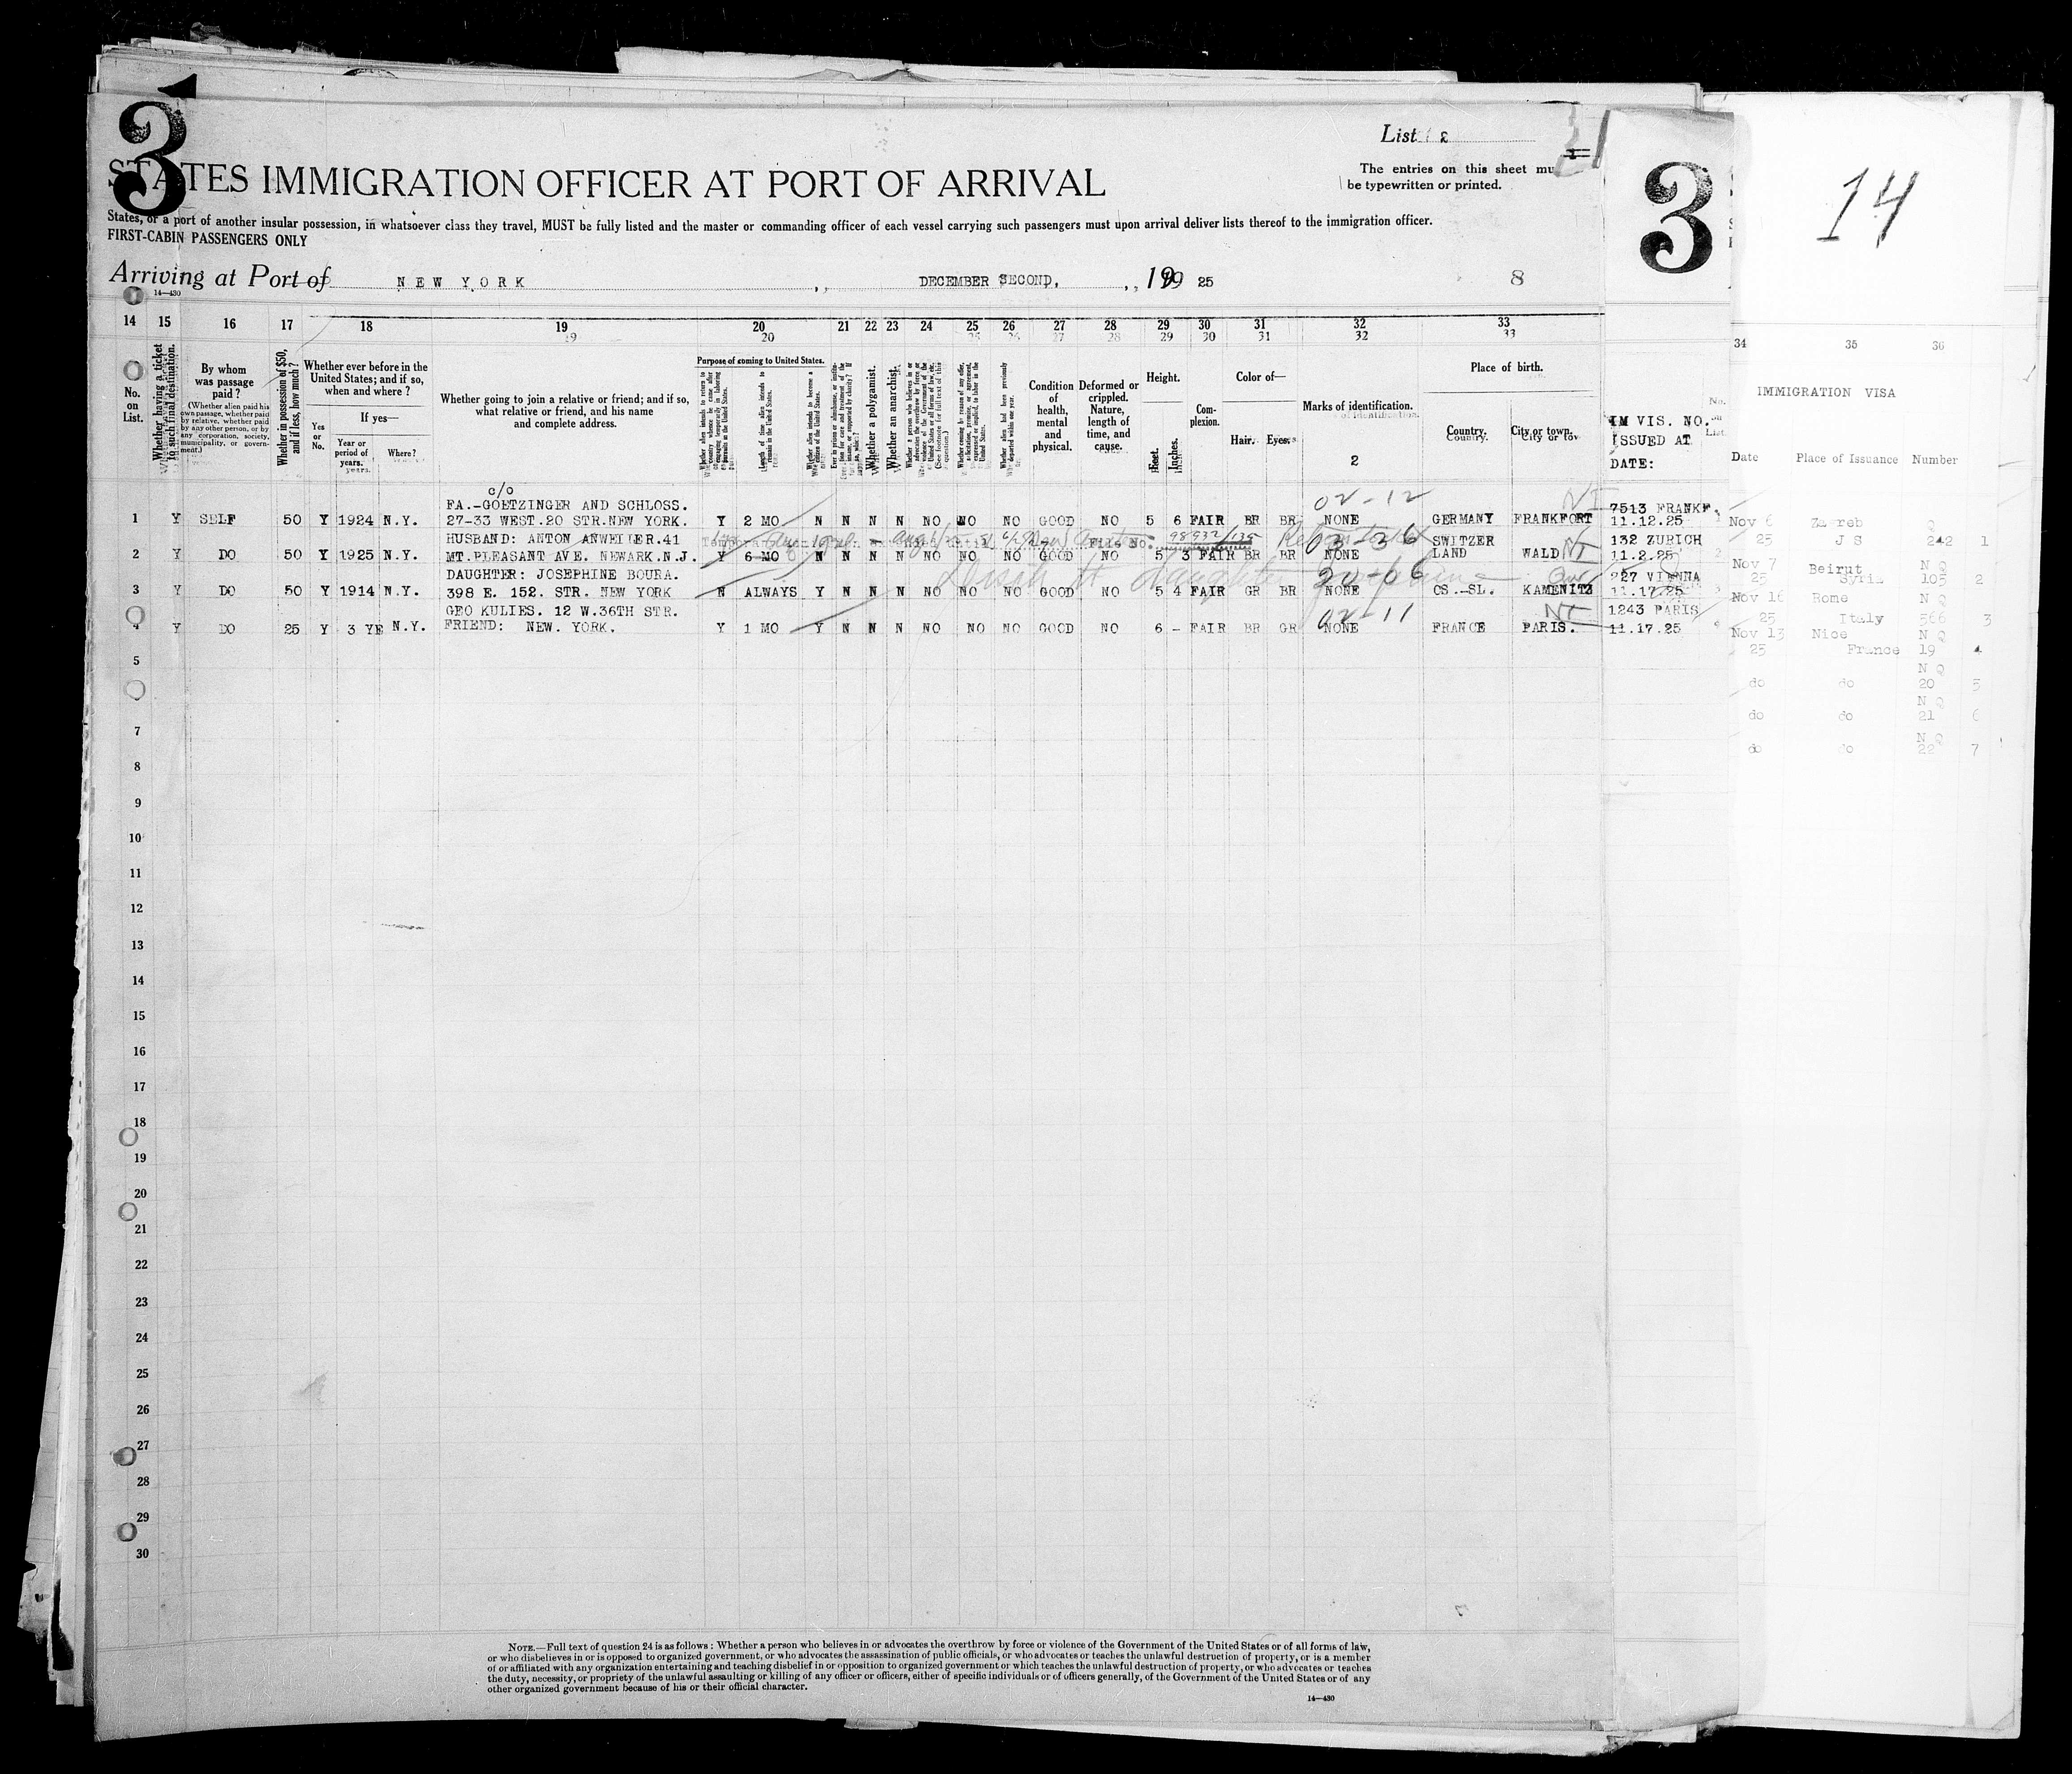 3
3
14
List 2
The entries on this sheet mu
be typewritten or printed.
STATES IMMIGRATION OFFICER AT PORT OF ARRIVAL
States, or a port of another insular possession, in whatsoever class they travel, MUST be fully listed and the master or commanding officer of each vessel carrying such passengers must upon arrival deliver lists thereof to the immigration officer.
FIRST-CABIN PASSENGERS ONLY
Arriving at Port of NEW YORK , DECEMBER SECOND, , 19 25 8
14—430
14 15 16 17 18 19 20 21 22 23 24 25 26 27 28 29 30 31 32 33
34 35 36
No. on List.
Whether having a ticket to such final destination.
By whom was passage paid?
(Whether alien paid his own passage, whether paid by relative, whether paid by any other person, or by any corporation, society, municipality, or government.)
Whether in possession of $50, and if less, how much?
Whether ever before in the United States; and if so, when and where?
If yes—
Yes or No.
Year or period of years.
Where?
Whether going to join a relative or friend; and if so, what relative or friend, and his name and complete address.
Purpose of coming to United States.
Length of time alien intends to remain in the United States.
Whether alien intends to become a citizen of the United States.
Whether a polygamist.
Whether an anarchist.
Condition of health, mental and physical.
Deformed or crippled. Nature, length of time, and cause.
Height.
Feet.
Inches.
Complexion.
Color of—
Hair.
Eyes.
Marks of identification.
2
Place of birth.
Country.
City or town.
IM VIS. NO.
ISSUED AT
DATE:
IMMIGRATION VISA
Date Place of Issuance Number
c/o
FA.-GOETZINGER AND SCHLOSS. 02-12 NI 7513 FRANKF.
1 Y SELF 50 Y 1924 N.Y. 27-33 WEST.20 STR.NEW YORK. Y 2 MO N N N N NO NO NO GOOD NO 5 6 FAIR BR BR NONE GERMANY FRANKFORT 11.12.25
HUSBAND: ANTON ANWEILER.41 File No. 98932/135 03-36 SWITZER 132 ZURICH
2 Y DO 50 Y 1925 N.Y. MT.PLEASANT AVE. NEWARK.N.J. Y 6 MO N N N N NO NO NO GOOD NO 5 3 FAIR BR BR NONE LAND WALD NI 11.2.25
DAUGHTER: JOSEPHINE BOURA. 20-06 227 VIENNA
3 Y DO 50 Y 1914 N.Y. 398 E. 152. STR. NEW YORK N ALWAYS Y N N N NO NO NO GOOD NO 5 4 FAIR GR BR NONE CS.-SL. KAMENITZ 11.17.25
GEO KULIES. 12 W.36TH STR. 02-11 NI 1243 PARIS
4 Y DO 25 Y 3 YE N.Y. FRIEND: NEW. YORK. Y 1 MO Y N N N NO NO NO GOOD NO 6 - FAIR BR GR NONE FRANCE PARIS. 11.17.25
Nov 6 Zagreb Q
25 J S 242 1
Nov 7 Beirut N Q
25 Syria 105 2
Nov 16 Rome N Q
25 Italy 566 3
Nov 13 Nice N Q
25 France 19 4
N Q
do do 20 5
N Q
do do 21 6
N Q
do do 22 7
5
6
7
8
9
10
11
12
13
14
15
16
17
18
19
20
21
22
23
24
25
26
27
28
29
30
NOTE.—Full text of question 24 is as follows: Whether a person who believes in or advocates the overthrow by force or violence of the Government of the United States or of all forms of law,
or who disbelieves in or is opposed to organized government, or who advocates the assassination of public officials, or who advocates or teaches the unlawful destruction of property, or is a member
of or affiliated with any organization entertaining and teaching disbelief in or opposition to organized government or which teaches the unlawful destruction of property, or who advocates or teaches
the duty, necessity, or propriety of the unlawful assaulting or killing of any officer or officers, either of specific individuals or of officers generally, of the Government of the United States or of any
other organized government because of his or their official character.
14—430